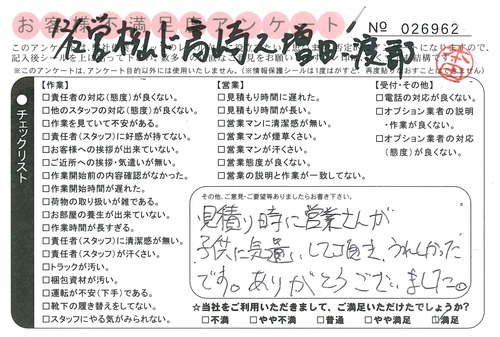 お客様不満足度アンケート
No 026962
佐営 松下 高崎 ス 増田 渡部
チェックリスト
【作業】
□責任者の対応(態度)が良くない。
□他のスタッフの対応(態度)が良くない。
□作業を見ていて不安がある。
□責任者(スタッフ)に好感が持てない。
□お客様への挨拶が出来ていない。
□ご近所への挨拶・気遣いが無い。
□作業開始前の内容確認がなかった。
□作業開始時間が遅れた。
□荷物の取り扱いが雑である。
□お部屋の養生が出来ていない。
□作業時間が長すぎる。
□責任者(スタッフ)に清潔感が無い。
□責任者(スタッフ)が汗くさい。
□トラックが汚い。
□梱包資材が汚い。
□運転が不安(下手)である。
□靴下の履き替えをしてない。
□スタッフにやる気がみられない。
【営業】
□見積もり時間に遅れた。
□見積もり時間が長い。
□営業マンに清潔感が無い。
□営業マンが煙草くさい。
□営業マンが汗くさい。
□営業態度が良くない。
□営業の説明と作業が一致してない。
【受付・その他】
□電話の対応が良くない。
□オプション業者の説明
・作業が良くない。
□オプション業者の対応
(態度)が良くない。
その他、ご意見・ご要望等ありましたらお書き下さい。
見積り時に営業さんが
子供に気遣いして頂き、うれしかった
です。ありがとうございました。
☆当社をご利用いただきまして、ご満足いただけたでしょうか?
□不満 □やや不満 □普通 □やや満足 □満足